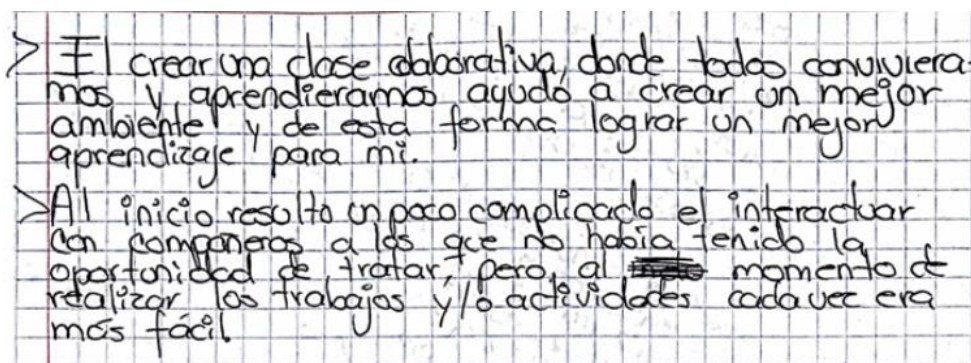 > El crear una clase colaborativa, donde todos conviviera-
mos y aprendieramos ayudó a crear un mejor
ambiente y de esta forma lograr un mejor
aprendizaje para mi.
> Al inicio resulto un poco complicado el interactuar
con compañeros a los que no había tenido la
oportunidad de tratar, pero, al momento de
realizar los trabajos y/o actividades cada vez era
más fácil.